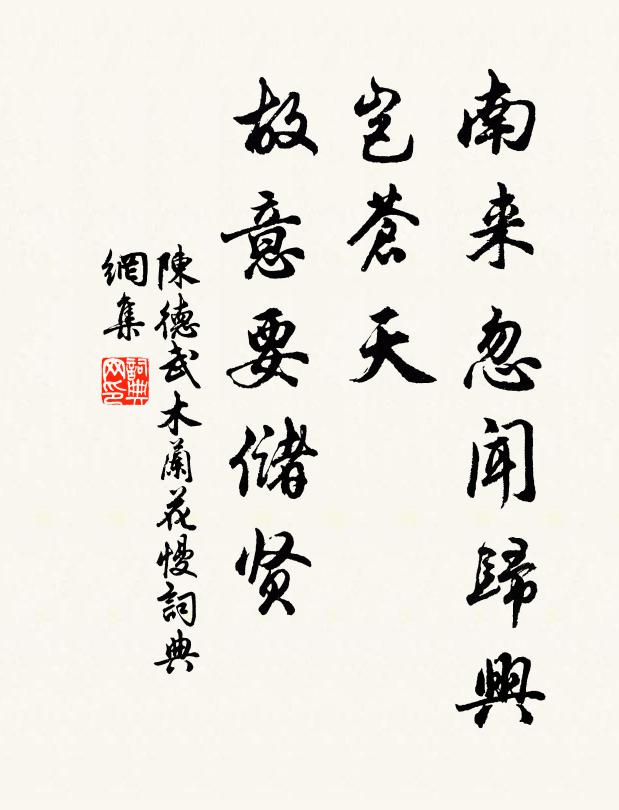 南来忽闻歸興
岂蒼天
故意要儲贤
陳德武木蘭花慢詞典
網集
詞典
网印